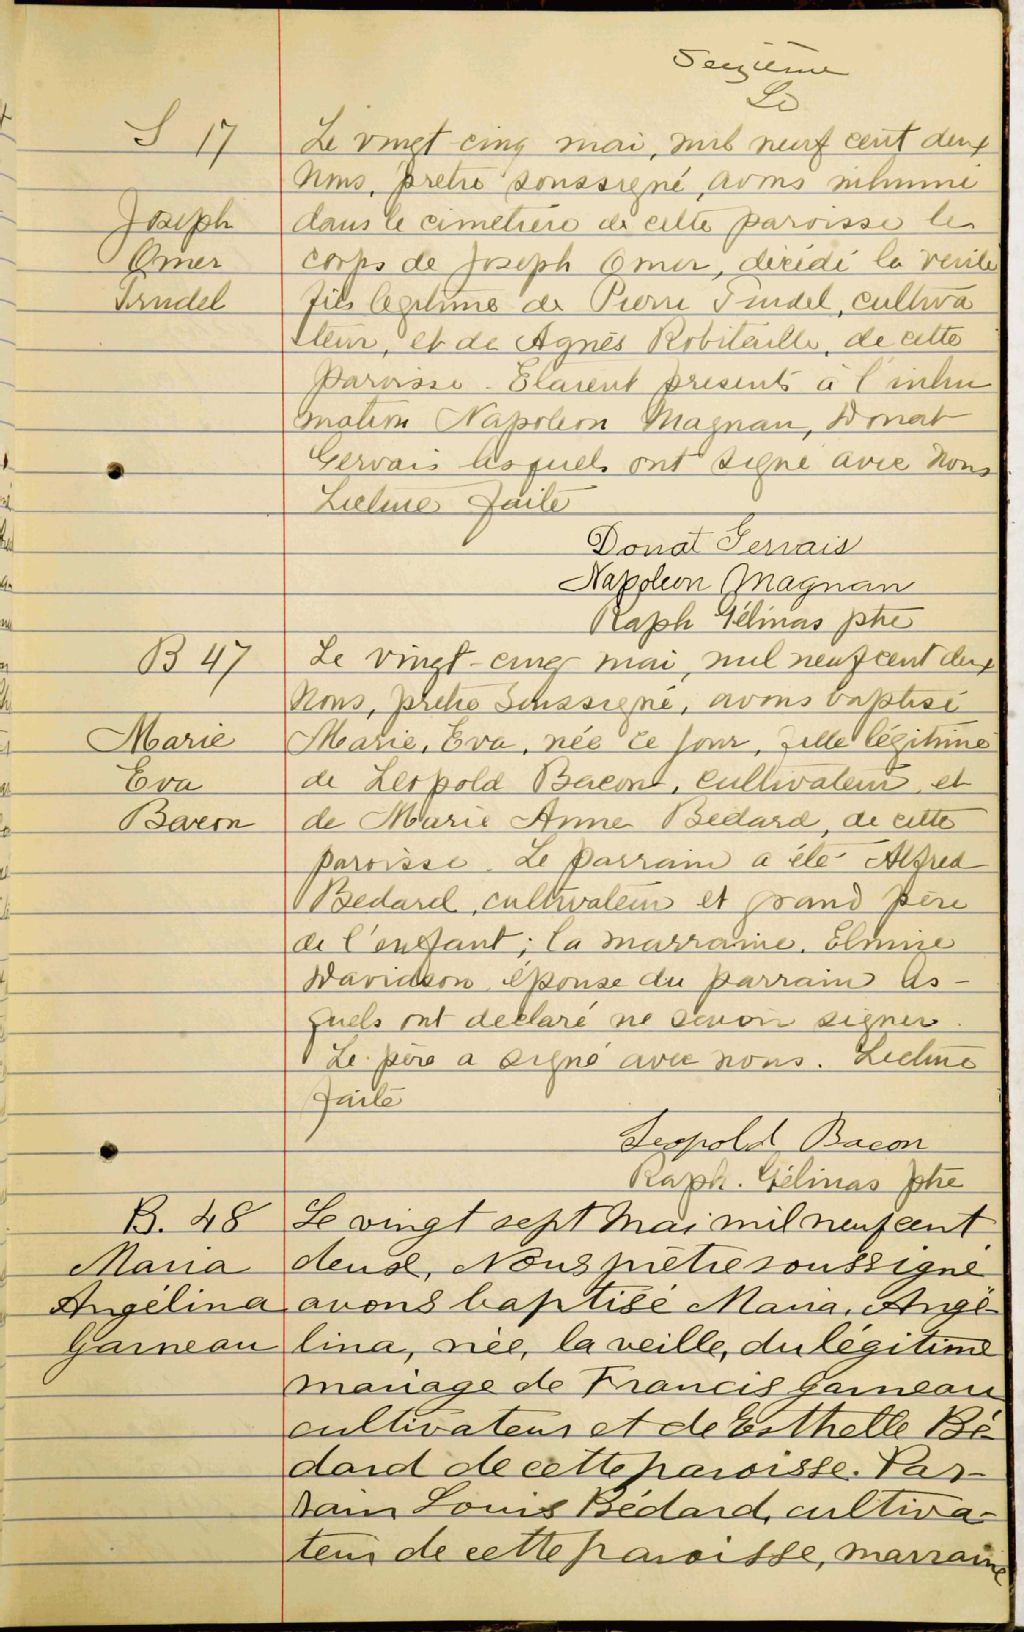 Seizième
S 17
Le vingt-cinq mai, mil neuf cent deux
Nous, prêtre soussigné, avons inhumé
Joseph
dans le cimetière de cette paroisse le
Omer
corps de Joseph Omer, décédé la veille
Trudel
fils légitime de Pierre Trudel, cultiva
teur, et de Agnès Robitaille, de cette
paroisse. Etaient présents à l'inhu
mation Napoléon Magnan, Donat
Gervais lesquels ont signé avec nous
Lecture faite
Donat Gervais
Napoleon Magnan
Raph Gélinas ptre
B 47
Le vingt-cinq mai, mil neuf cent deux
Nous, prêtre soussigné, avons baptisé
Marie
Marie, Eva, née ce jour, fille légitime
Eva
de Léopold Bacon, cultivateur, et
Bacon
de Marie Anne Bédard, de cette
paroisse. Le parrain a été Alfred
Bedard, cultivateur et grand père
de l'enfant; la marraine, Elmire
Davidson épouse du parrain les-
quels ont déclaré ne savoir signer.
Le père a signé avec nous. Lecture
faite
Leopold Bacon
Raph. Gélinas ptre
B. 48
Le vingt sept Mai mil neuf cent
Maria
deux, Nous prêtre soussigné
Angélina
avons baptisé Maria, Angé-
Garneau
lina, née, la veille, du légitime
mariage de Francis Garneau
cultivateur et de Esthelle Bé-
dard de cette paroisse. Par-
rain Louis Bédard, cultiva-
teur de cette paroisse, marraine